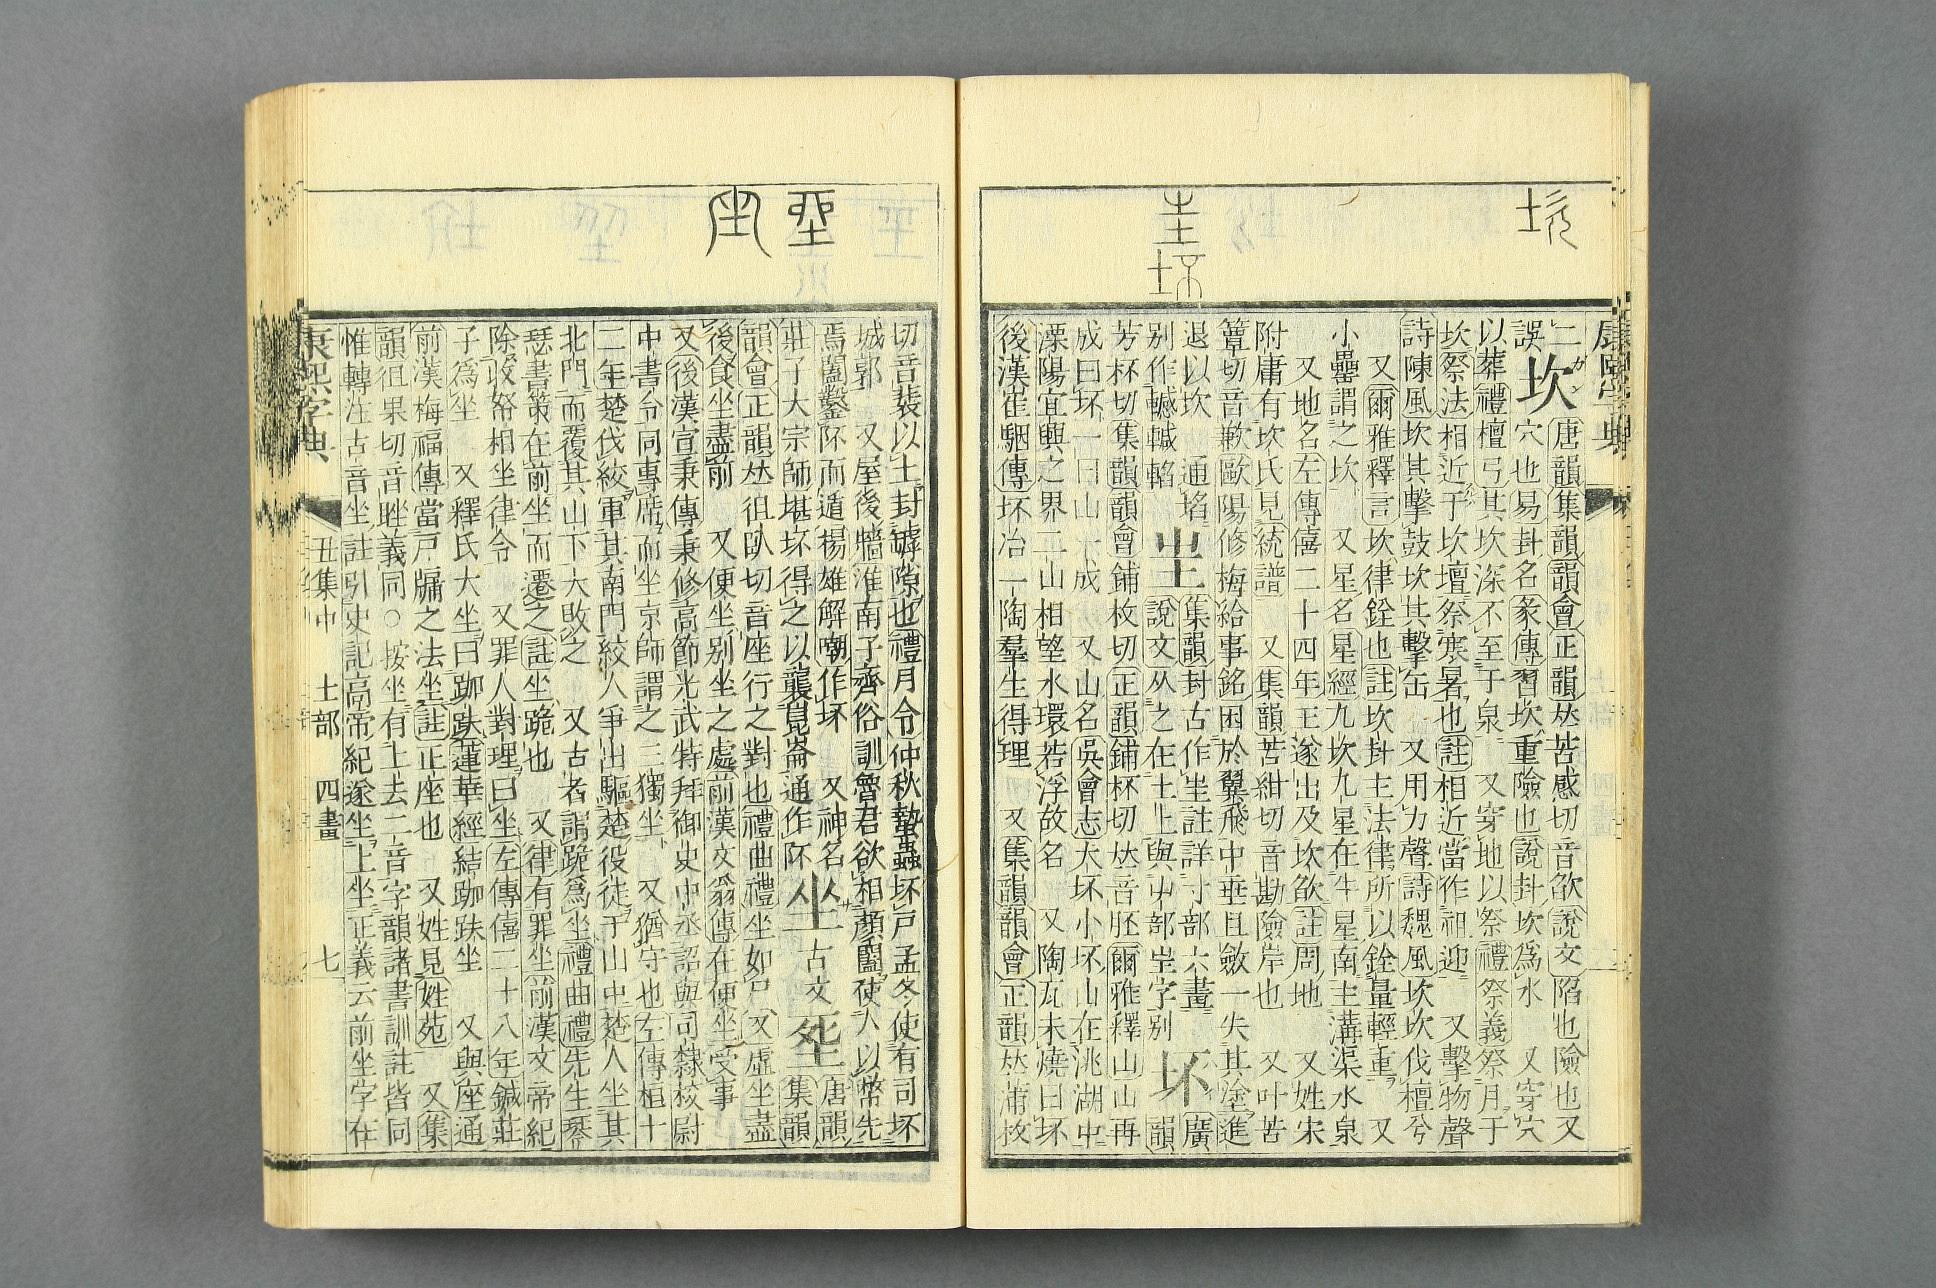 康熙字典
二坎唐韻集韻韻會正韻𠀤苦感切音欿說文陷也險也又
誤穴也易卦名彖傳習坎重險也說卦坎爲水 又穿穴
以葬禮檀弓其坎深不至于泉 又穿地以祭禮祭義祭月于
坎祭法相近于坎壇祭寒暑也註相近當作祖迎 又擊物聲
詩陳風坎其擊鼓坎其擊缶 又用力聲詩魏風坎坎伐檀兮
又爾雅釋言坎律銓也註坎卦主法律所以銓量輕重 又
小罍謂之坎 又星名星經九坎九星在牛星南主溝渠水泉
又地名左傳僖二十四年王遂出及坎欿註周地 又姓宋
附庸有坎氏見統譜 又集韻苦紺切音勘險岸也 又叶苦
簟切音歉歐陽修梅給事銘困於翼飛中垂且斂一失其塗進
退以坎 通埳
坐集韻封古作坐註詳寸部六畫
别作轗轞輡
說文从之在土上與屮部㞷字别
坏廣韻
芳杯切集韻韻會鋪枚切正韻鋪杯切𠀤音胚爾雅釋山山再
成曰坏一曰山一成 又山名吳會志大坏小坏山在洮湖中
溧陽宜興之界二山相望水環若浮故名 又陶瓦未燒曰坏
後漢崔駰傳坏冶一陶羣生得理 又集韻韻會正韻𠀤蒲枚
切音裴以土封罅隙也禮月令仲秋蟄蟲坏戸孟冬使有司坏
城郭 又屋後牆淮南子齊俗訓魯君欲相顏闔使人以幣先
焉闔鑿阫而遁楊雄解嘲作坏 又神名
莊子大宗師堪坏得之以襲崑崙通作阫
坐古文㘸唐韻集韻
韻會正韻𠀤徂臥切音座行之對也禮曲禮坐如尸 又虛坐盡
後食坐盡前 又便坐别坐之處前漢文翁傳在便坐受事
又後漢宣秉傳秉修高節光武特拜御史中丞詔與司隸校尉
中書令同專席而坐京師謂之三獨坐 又猶守也左傳桓十
二年楚伐絞軍其南門絞人爭出驅楚役徒于山中楚人坐其
北門而覆其山下大敗之 又古者謂跪爲坐禮曲禮先生琴
瑟書策在前坐而遷之註坐跪也 又律有罪坐前漢文帝紀
除收帑相坐律令 又罪人對理曰坐左傳僖二十八年鍼莊
子爲坐 又釋氏大坐曰跏趺蓮華經結跏趺坐 又與座通
前漢梅福傳當戸牖之法坐註正座也 又姓見姓苑 又集
韻徂果切音睉義同○按坐有上去二音字韻諸書訓註皆同
惟轉注古音坐註引史記高帝紀遂坐上坐正義云前坐字在
康熙字典 丑集中 土部 四畫 七